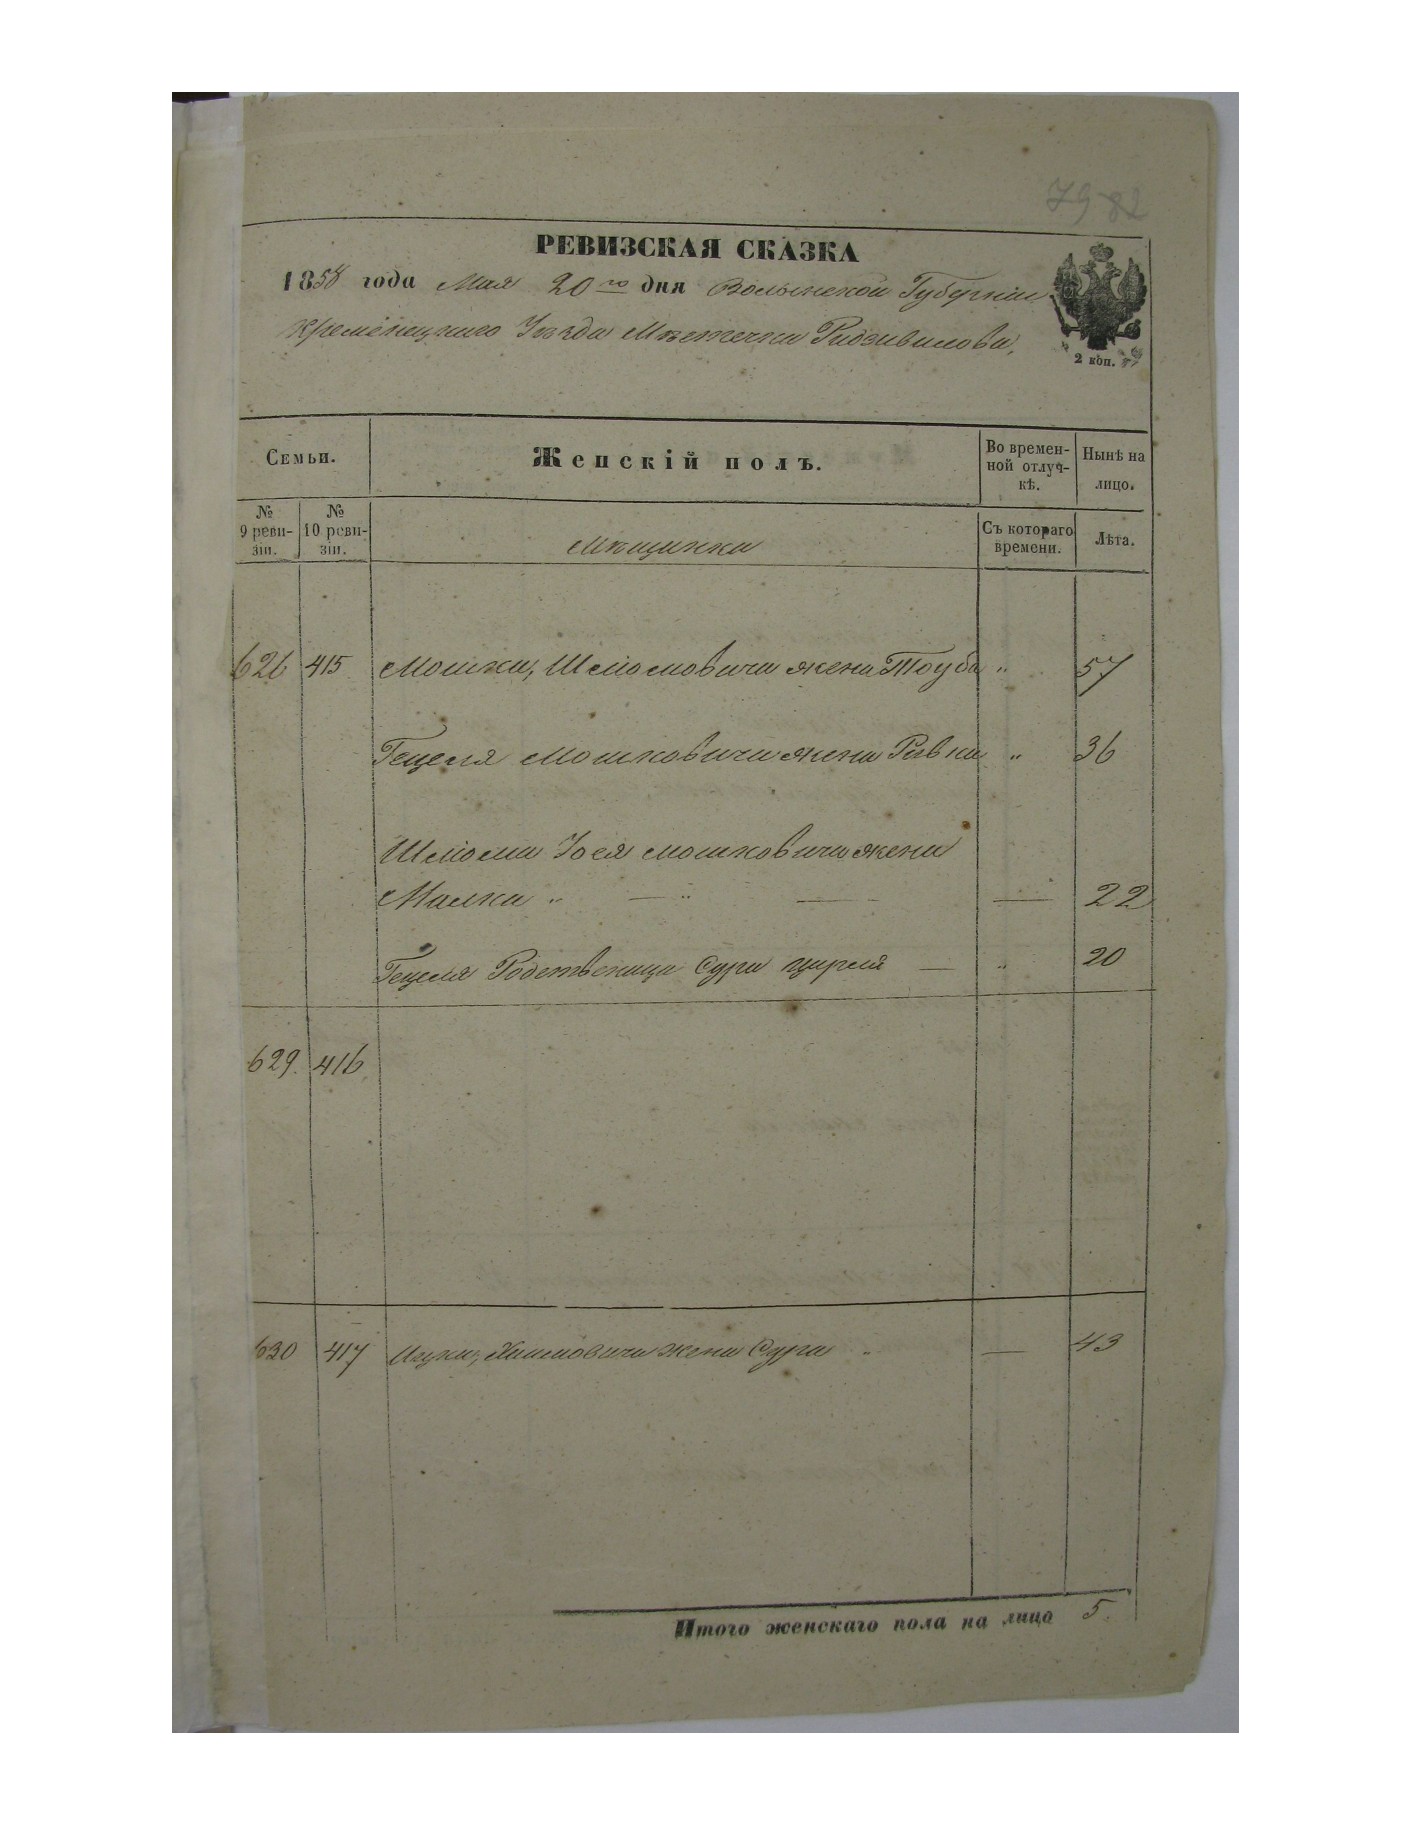 79 82
РЕВИЗСКАЯ СКАЗКА
1858 года Мая 20го дня Волынской Губерніи
Кременецкого Уѣзда Мѣстечка Радзивилова,
2 коп.
Семьи.
Женскій полъ.
Во времен-
ной отлуч-
кѣ.
Нынѣ на
лицо.
№
9 реви-
зіи.
№
10 реви-
зіи.
Мѣщанки
Съ котораго
времени.
Лѣта.
626 415 Мошка, Шліомовича жена Тоуба " 57
Гецеля Мошковича жена Ривка " 36
Шліома Іося Мошковича жена
Малка " — " — — 22
Гецеля Родственица Сура Цирля — " 20
629. 416
630 417 Ицка, Хаимовича жена Сура " — 43
Итого женскаго пола на лицо 5.